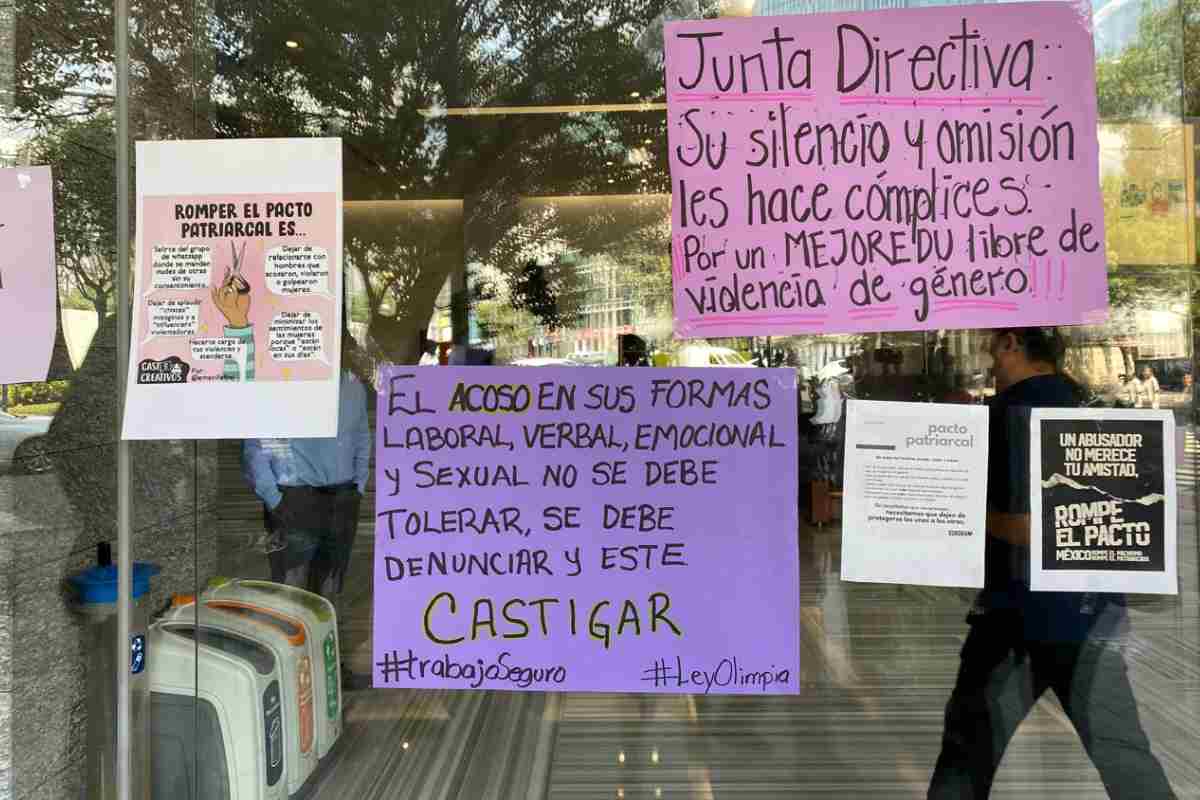 Junta Directiva:
Su silencio y omisión
les hace cómplices.
Por un MEJOREDU libre de
violencia de género!!!
ROMPER EL PACTO
PATRIARCAL ES...
Salirte del grupo
de whatsapp
donde se mandan
nudes de otras
sin su
consentimiento.
Dejar de
relacionarte con
hombres que
acosaron, violaron
o golpearon
mujeres.
Dejar de aplaudir
"chistes"
misóginos y a
"influencers"
violentadores.
Dejar de
minimizar los
sentimientos de
las mujeres
porque "están
locas" o "están
en sus días".
Hacerte cargo de
tus violencias y
atenderse.
CREATIVOS
Por:
EL ACOSO EN SUS FORMAS
LABORAL, VERBAL, EMOCIONAL
y SEXUAL NO SE DEBE
TOLERAR, SE DEBE
DENUNCIAR y ESTE
CASTIGAR
#trabajoSeguro #LeyOlimpia
pacto
patriarcal
necesitamos que dejen de
protegerse los unos a los otros.
UN ABUSADOR
NO MERECE
TU AMISTAD,
ROMPE
EL PACTO
MÉXICO